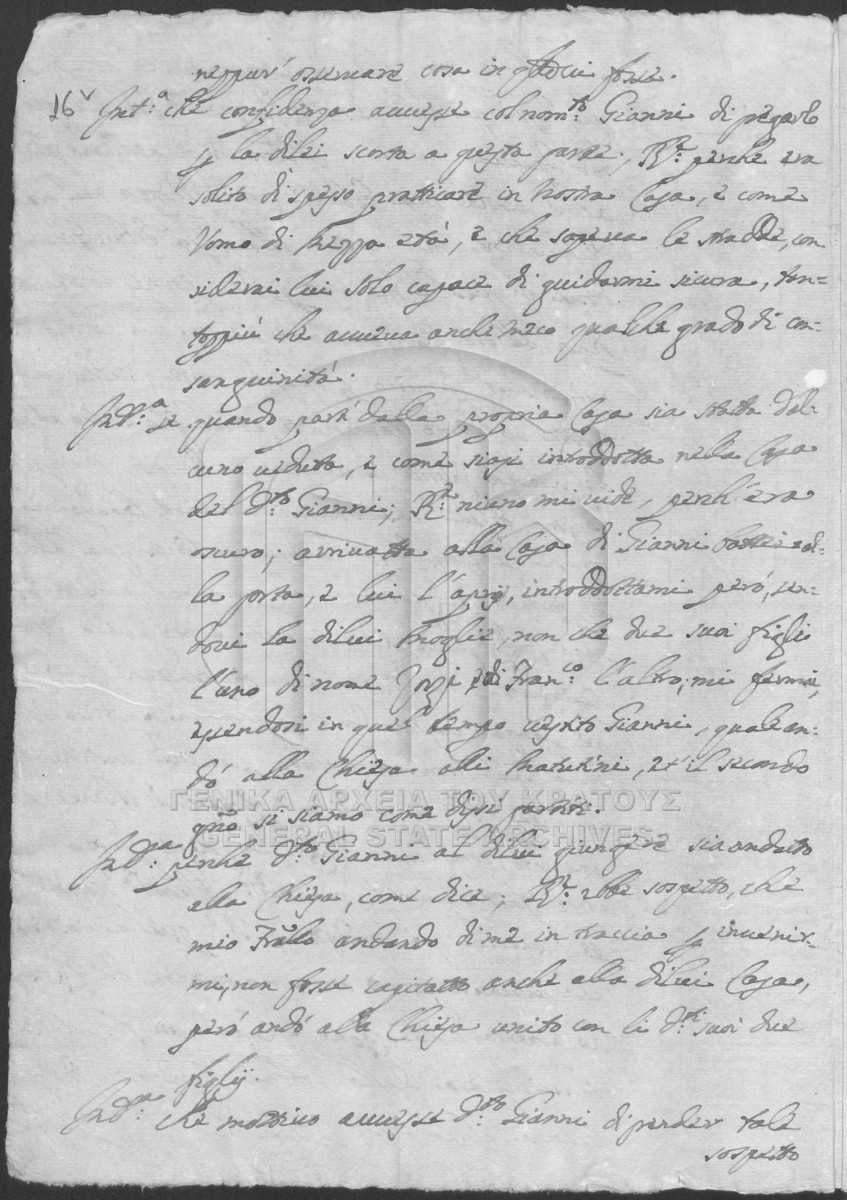 neppur' osservare cosa in
16v Int.a che confidenza avesse col nom.to Gianni di pregarlo
la di lei scorta a questa parte; R.e perche era
solito di spesso pratticare in nostra Casa, e come
Uomo di mezza età, e che sapeva le stradde, con
siderai lui solo capace di guidarmi sicura, tan=
toppiù che aveva anche meco qualche grado di con=
sanguinità.
Int.a se quando partì dalla propria Casa sia statta d'al=
cuno veduta, e come siasi introddotta nella Casa
del d.to Gianni; R.e niuno mi vide, perch'era
oscuro; arrivatta alla Casa di Gianni al=
la porta, e lui l'aprij, introddottami però, sen=
dovi la di lui moglie, non che due suoi figli
l'uno di nome Jorsi, e di Fran.co l'altro, mi fermai,
essendosi in quel tempo vestito Gianni, quale an=
dò alla Chiesa alli Matutini, et il secondo
ΓΕΝΙΚΑ ΑΡΧΕΙΑ ΤΟΥ ΚΡΑΤΟΥΣ
giorno si siamo come dissi partiti.
GENERAL STATE ARCHIVES
Int.a perche d.to Gianni al di lui giungere sia andatto
alla Chiesa, come dice; R.e ebbe sospetto, che
mio Fratello andando di me in traccia p invenir=
mi, non fosse capitatto anche alla di lui Casa,
però andò alla Chiesa unito con li d.ti suoi due
figlij.
Int.a che mottivo avesse d.to Gianni di prender tale
sospetto